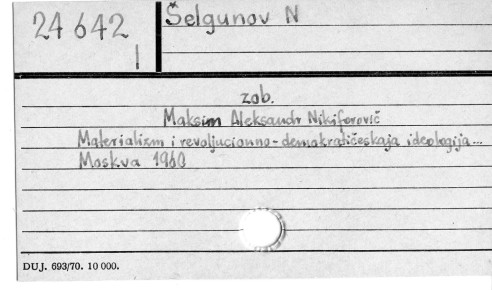 24 642
I
Šelgunov N
zob.
Maksim Aleksandr Nikiforovič
Materializm i revoljucionno-demokratičeskaja ideologija...
Moskva 1960
DUJ. 693/70. 10 000.